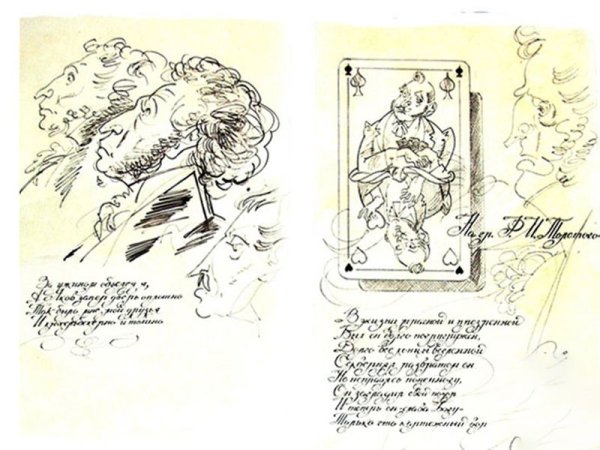 За ужином объелся я,
А Яков запер дверь оплошно
Так было мне, мои друзья
И кюхельбекерно и тошно
На гр. Ф. И. Толстого
В жизни мрачной и презренной
Был он долго погружен,
Долго все концы вселенной
Осквернял развратом он
Но исправясь понемногу,
Он загладил свой позор
И теперь он слава Богу
Только что картежный вор